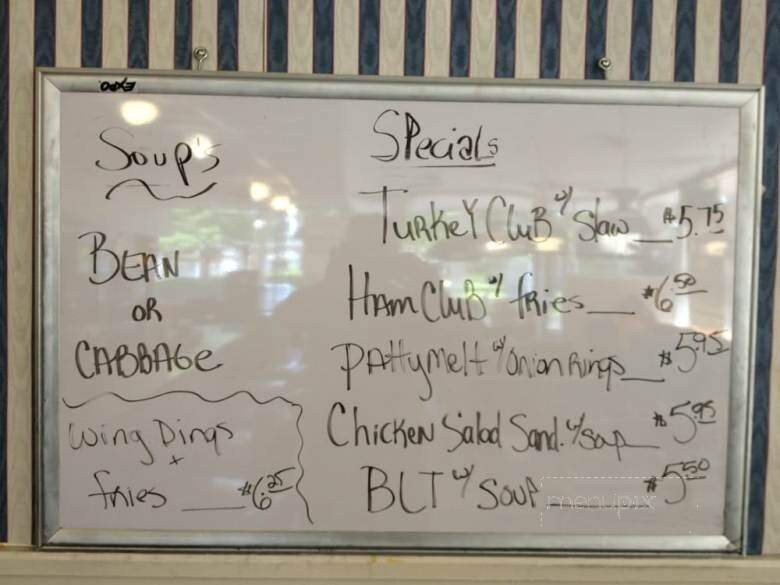 EXPO
Soup's
BEAN
OR
CABBAGE
Wing Dings
+
fries __ $6.25
Specials
Turkey Club w/ Slaw __ $5.75
Ham Club w/ fries __ $6.50
Patty Melt w/ Onion Rings __ $5.95
Chicken Salad Sand. w/ soup __ $5.95
BLT w/ SOUP __ $5.50
menupix